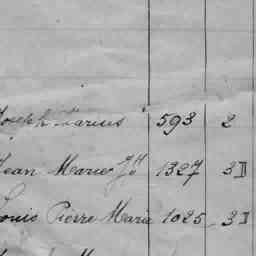 Joseph Marius 593 2
Jean Marie 1327 3D
Louis Pierre Marie 1025 3D